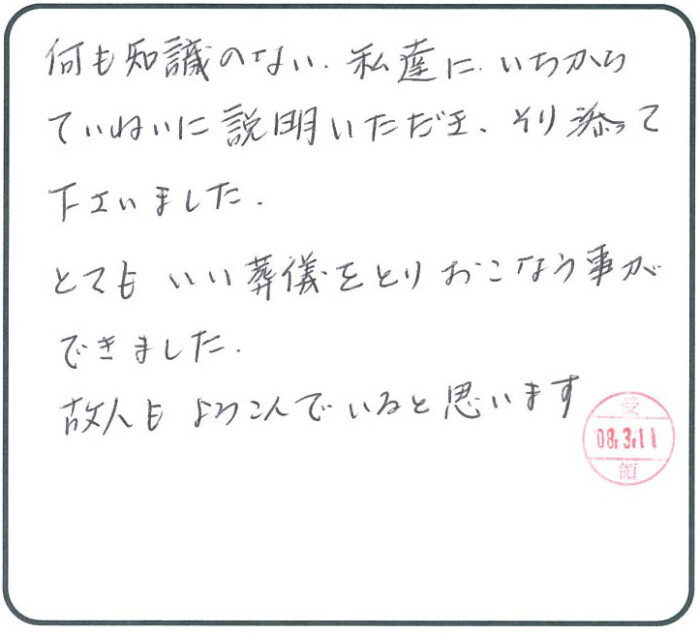 何も知識のない、私達に、いちから
ていねいに説明いただき、そり添って
下さいました。
とてもいい葬儀をとりおこなう事が
できました。
故人もよろこんでいると思います
受
08.3.11
領